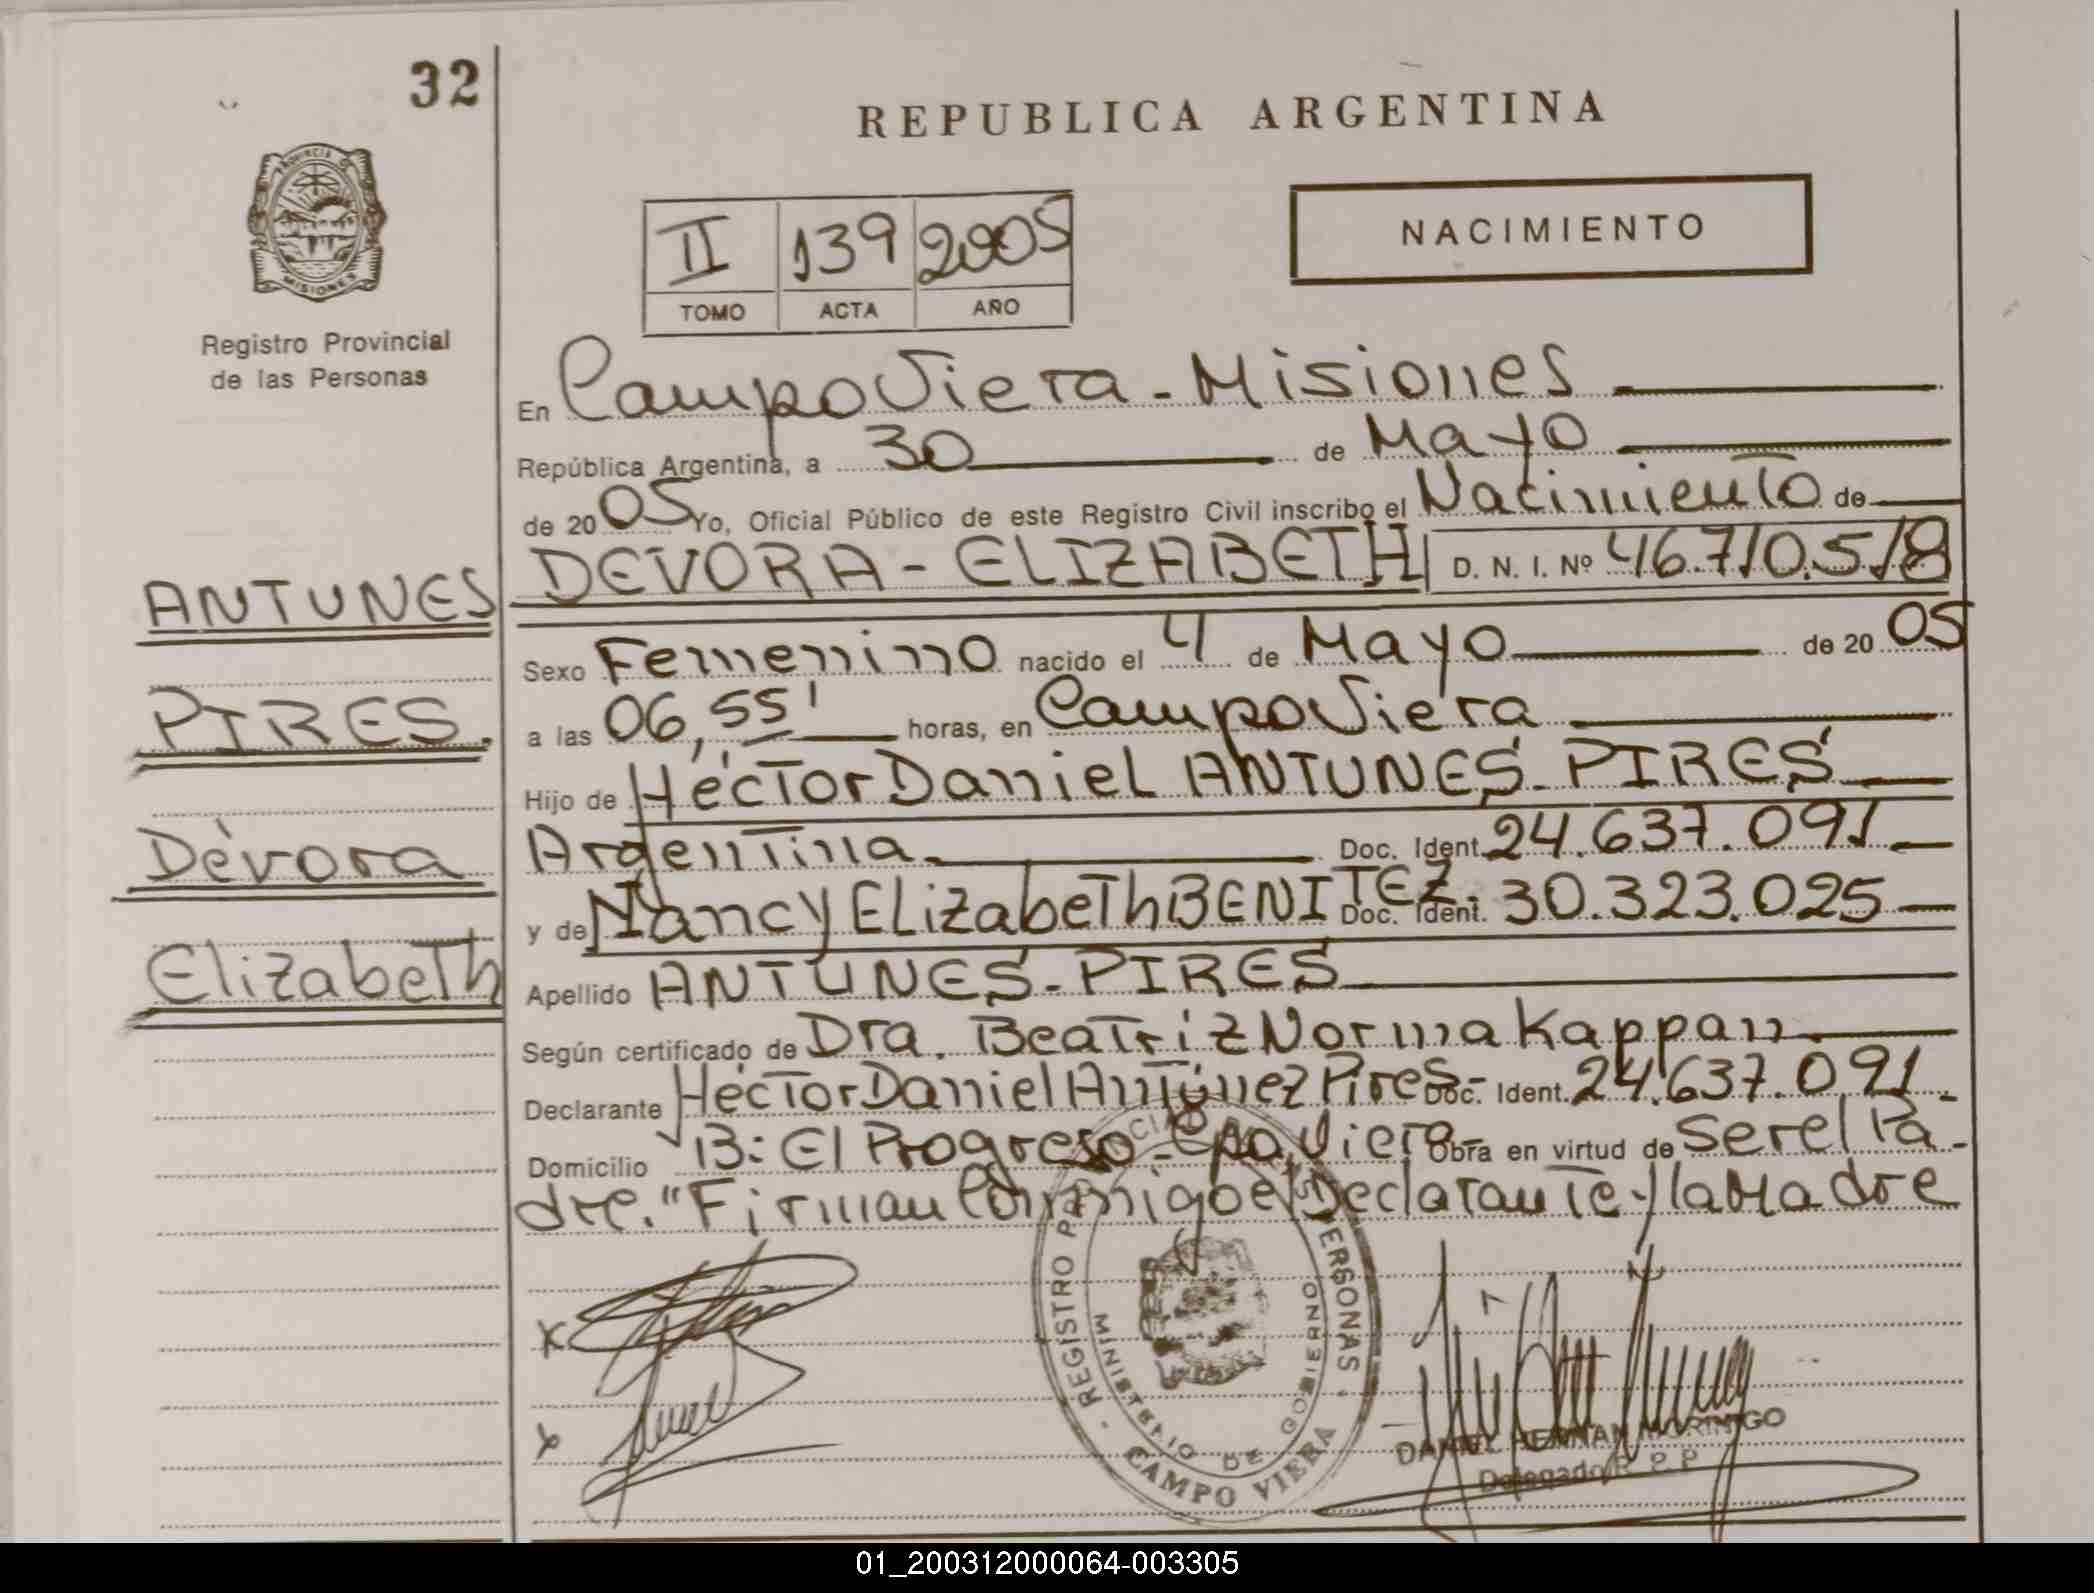 32
REPUBLICA ARGENTINA
PROVINCIA DE
MISIONES
Registro Provincial
de las Personas
II 139 2005
TOMO ACTA AÑO
NACIMIENTO
En Campo Viera - Misiones
República Argentina, a 30 de Mayo
de 2005 Yo, Oficial Público de este Registro Civil inscribo el Nacimiento de
DEVORA - ELIZABETH D. N. I. Nº 46.710.518
ANTUNES
PIRES.
Dévora
Elizabeth
Sexo Femenino nacido el 4 de Mayo de 2005
a las 06,55' horas, en Campo Viera
Hijo de Héctor Daniel ANTUNES - PIRES
Argentina. Doc. Ident. 24.637.091
y de Nancy Elizabeth BENITEZ. Doc. Ident. 30.323.025
Apellido ANTUNES - PIRES
Según certificado de Dra. Beatriz Norma Kappan
Declarante Héctor Daniel Antúnez Pires - Doc. Ident. 24.637.091
Domicilio B: El Progreso - Cpo Viera - Obra en virtud de Ser el Pa-
dre. "Firman Conmigo el Declarante y la Madre
x
x
REGISTRO PROVINCIAL DE LAS PERSONAS
MINISTERIO DE GOBIERNO
CAMPO VIERA
DANIEL HERNAN MORINIGO
Delegado R. P. P
01_200312000064-003305